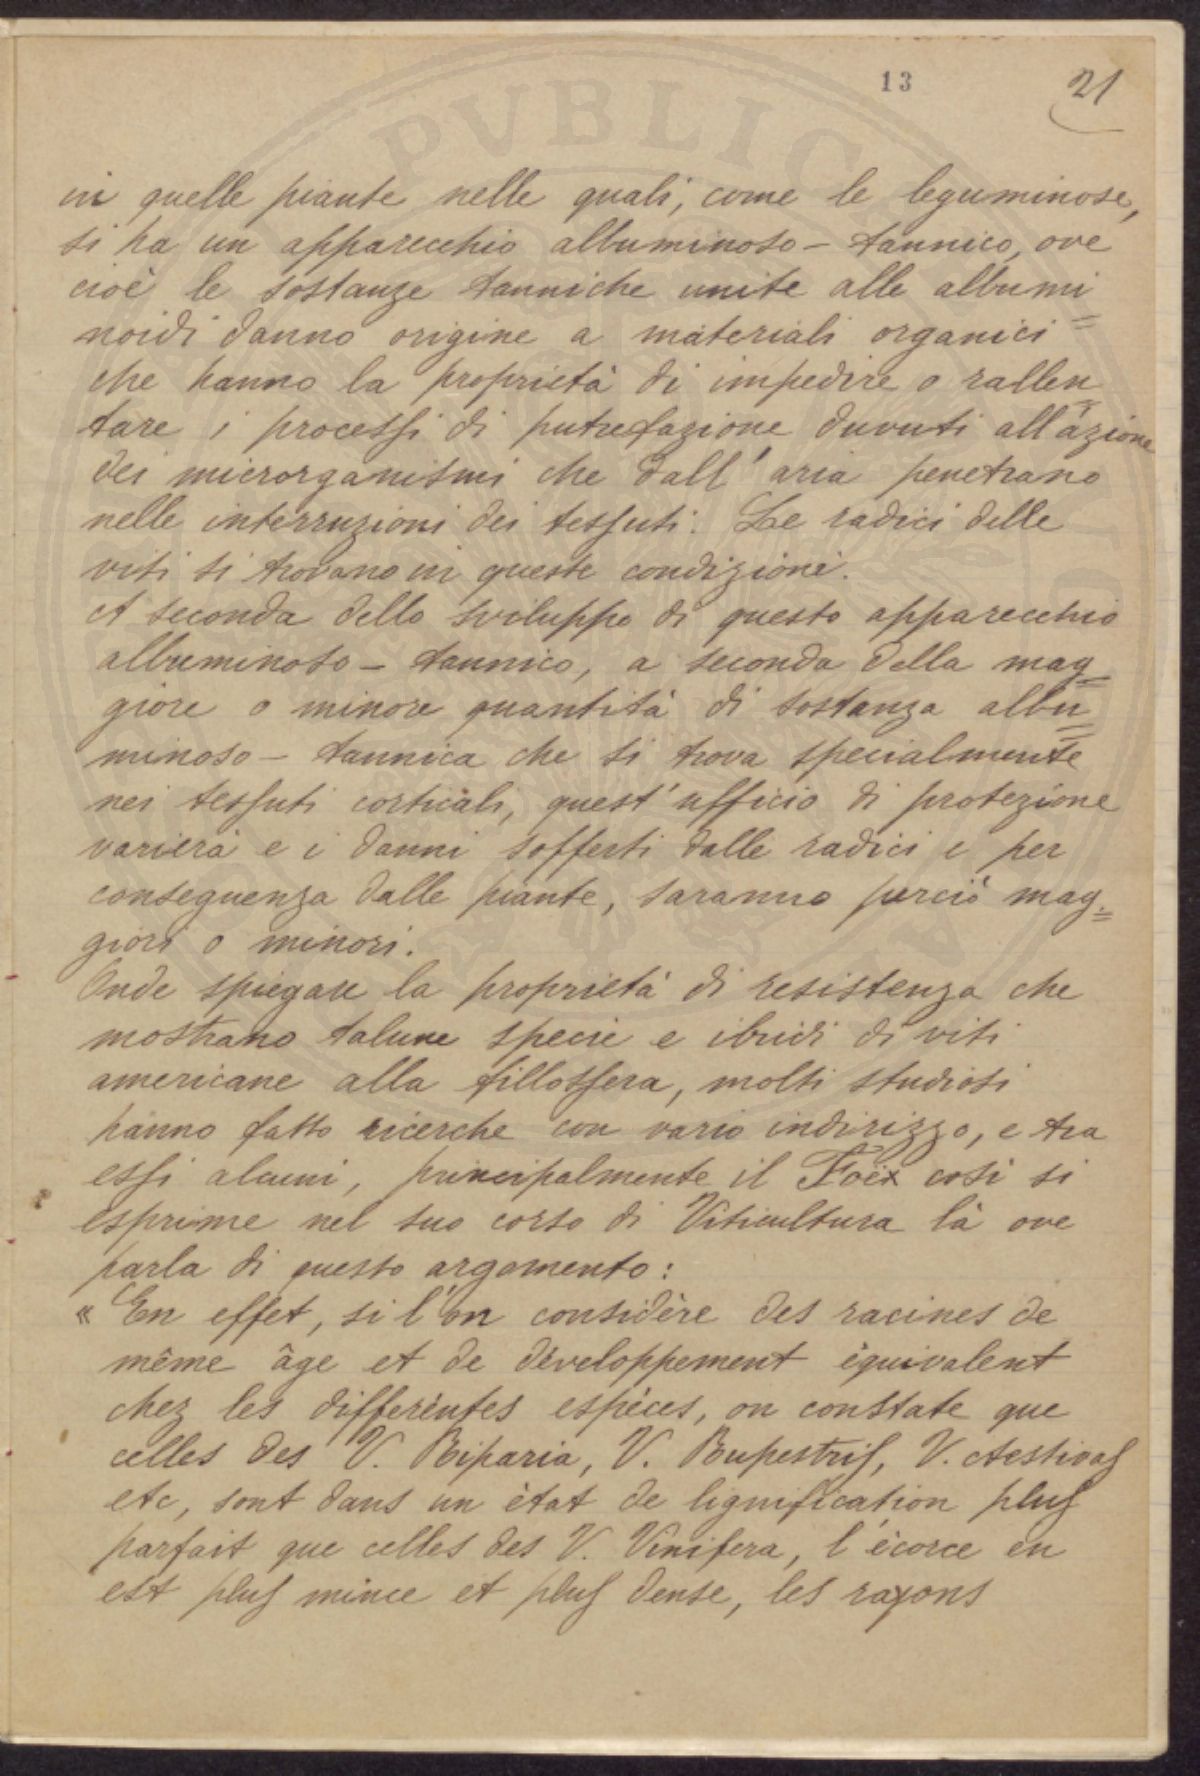 13
21
in quelle piante nelle quali, come le leguminose,
si ha un apparecchio albuminoso - tannico, ove
cioè le sostanze tanniche unite alle albumi=
noidi danno origine a materiali organici
che hanno la proprietà di impedire o rallen=
tare i processi di putrefazione duvuti all'azione
dei microrganismi che dall'aria penetrano
nelle interruzioni dei tessuti. Le radici delle
viti si trovano in queste condizioni.
A seconda dello sviluppo di questo apparecchio
albuminoso - tannico, a seconda della mag=
giore o minore quantità di sostanza albu=
minoso - tannica che si trova specialmente
nei tessuti corticali, quest'ufficio di protezione
varierà e i danni sofferti dalle radici e per
conseguenza dalle piante, saranno perciò mag=
giori o minori.
Onde spiegare la proprietà di resistenza che
mostrano talune specie e ibridi di viti
americane alla fillossera, molti studiosi
hanno fatto ricerche con vario indirizzo, e tra
essi alcuni, principalmente il Foëx così si
esprime nel suo corso di Viticultura là ove
parla di questo argomento:
« En effet, si l'on considère des racines de
même âge et de développement équivalent
chez les différentes espèces, on constate que
celles des V. Riparia, V. Rupestris, V. Aestivas
etc, sont dans un état de lignification plus
parfait que celles des V. Vinifera, l'écorce en
est plus mince et plus dense, les rayons
PVBLIC